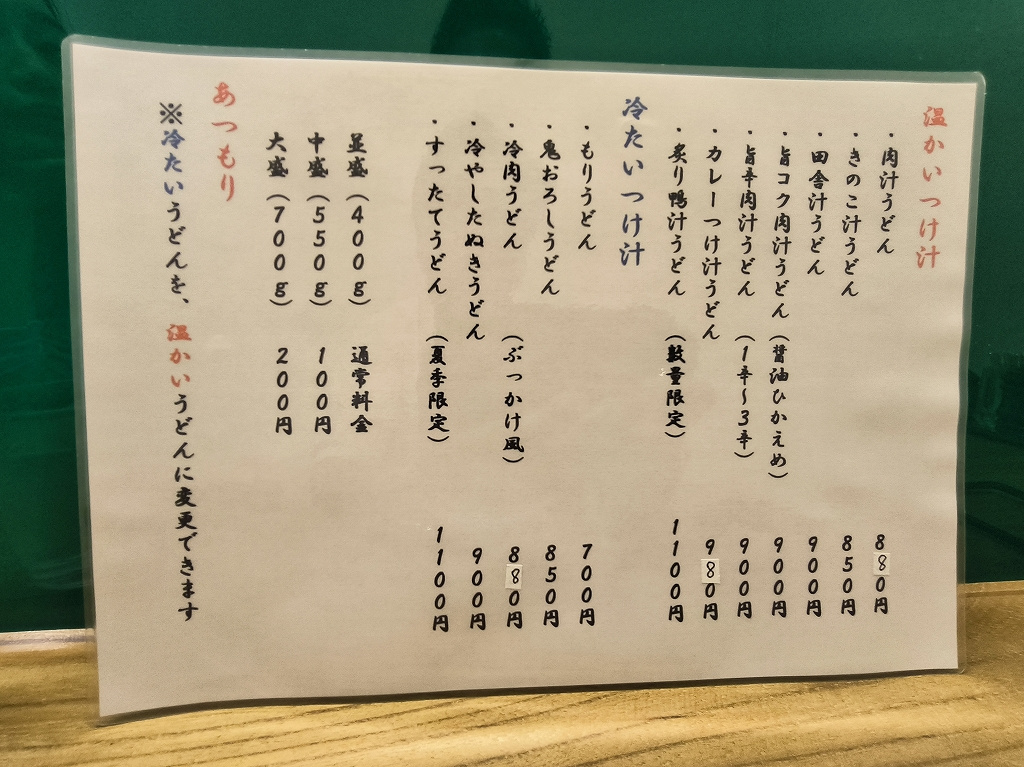 温かいつけ汁
・肉汁うどん 880円
・きのこ汁うどん 850円
・田舎汁うどん 900円
・旨コク肉汁うどん(醤油ひかえめ) 900円
・旨辛肉汁うどん(1辛~3辛) 900円
・カレーつけ汁うどん 980円
・炙り鴨汁うどん(数量限定) 1100円
冷たいつけ汁
・もりうどん 700円
・鬼おろしうどん 850円
・冷肉うどん(ぶっかけ風) 880円
・冷やしたぬきうどん 900円
・すったてうどん(夏季限定) 1100円
並盛(400g) 通常料金
中盛(550g) 100円
大盛(700g) 200円
あつもり
※冷たいうどんを、温かいうどんに変更できます